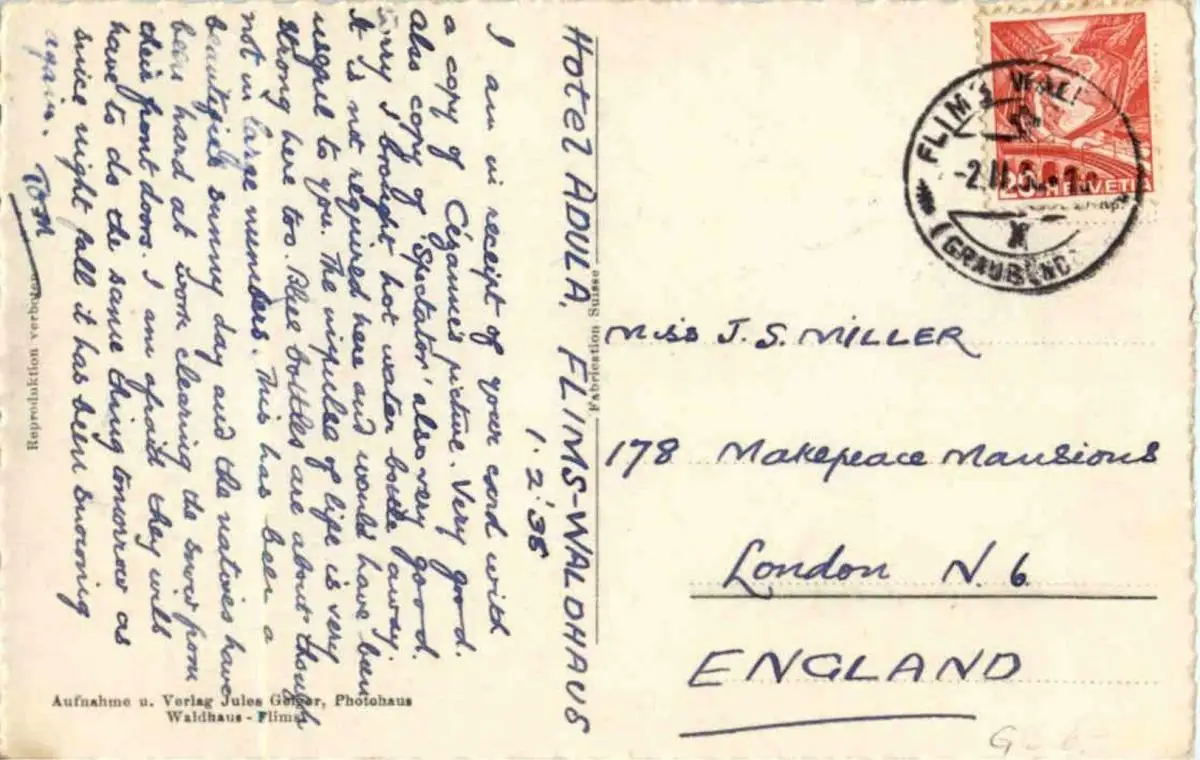 HOTEL ADULA, FLIMS-WALDHAUS
1.2.'38
I am in receipt of your card with
a copy of Cézanne's picture. Very good.
Also copy of 'Spectator' also very good.
Sorry I brought hot water bottle away.
It is not required here and would have been
useful to you. The impulse of life is very
strong here too. Blue bottles are about though
not in large numbers. This has been a
beautiful sunny day and the natives have
been hard at work clearing the snow from
their front doors. I am afraid they will
have to do the same thing tomorrow as
since night fall it has been snowing
again.
Tom
Reproduktion verboten
Aufnahme u. Verlag Jules Geiger, Photohaus
Waldhaus - Flims
Fabrication Suisse
FLIMS WALDHAUS
-2.II.38
(GRAUBÜND
20 HELVETIA
Miss J. S. MILLER
178 Makepeace Mansions
London N. 6
ENGLAND